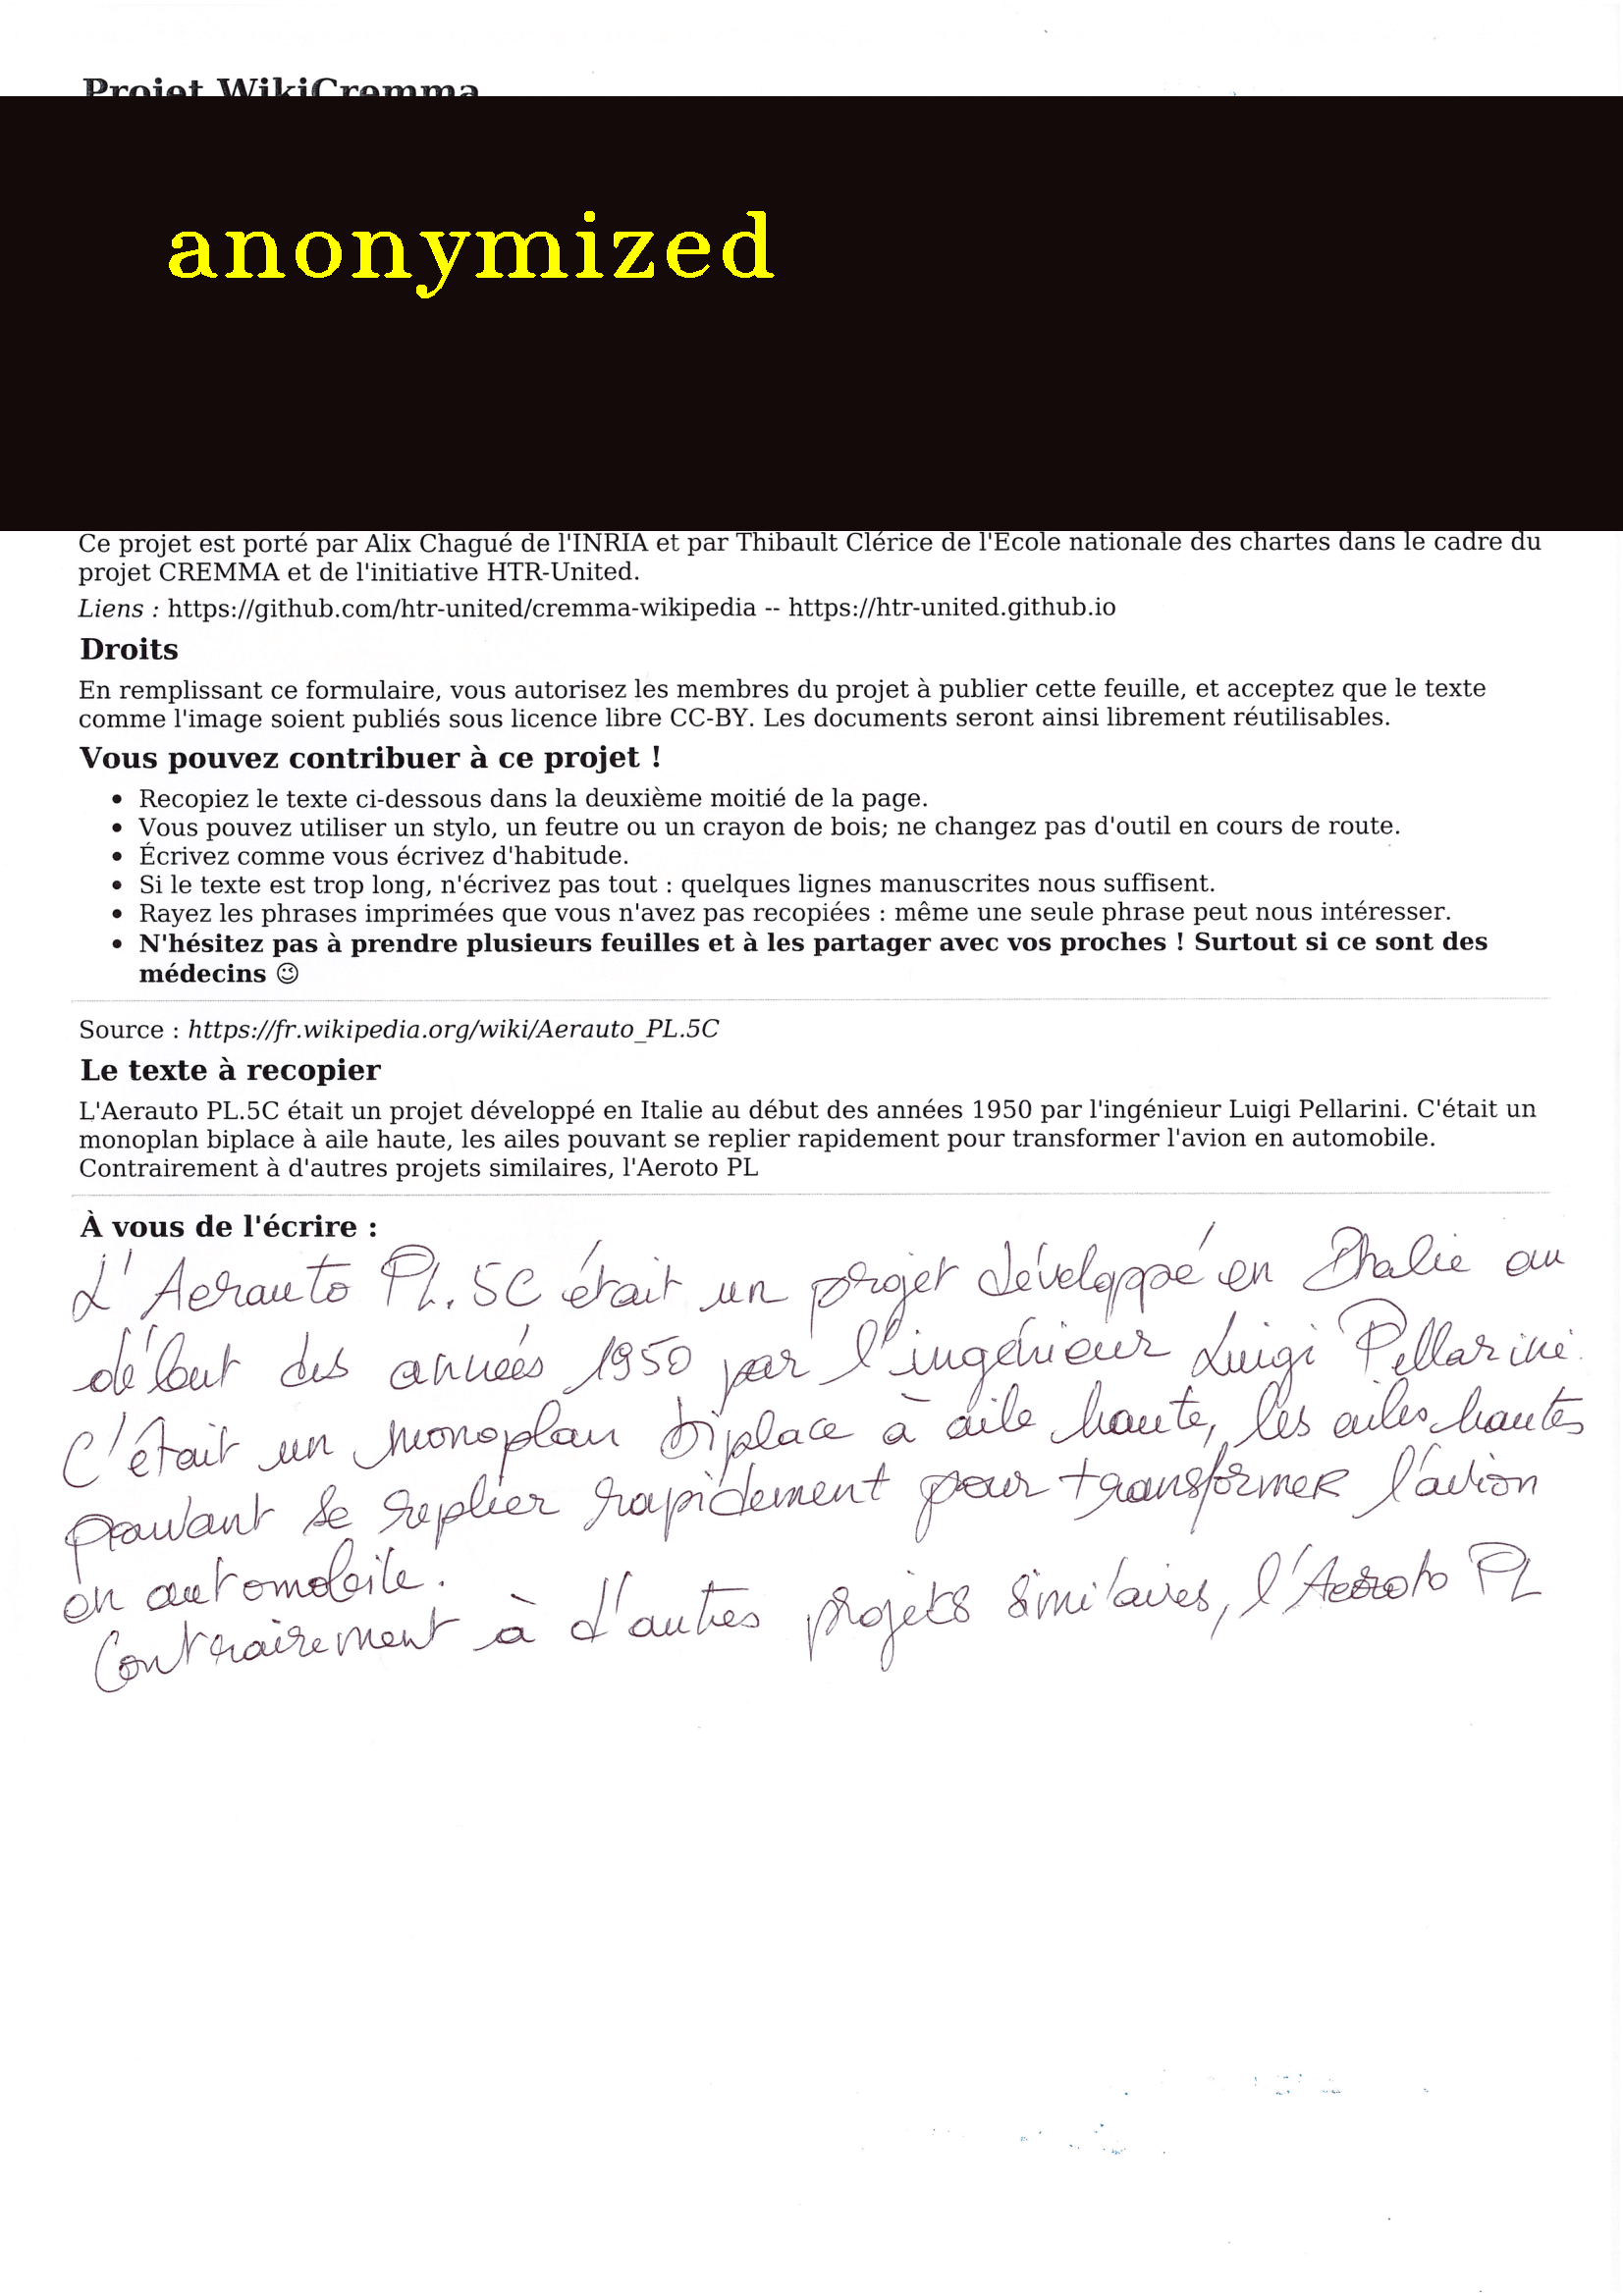 Projet WikiCremma
anonymized
Ce projet est porté par Alix Chagué de l'INRIA et par Thibault Clérice de l'Ecole nationale des chartes dans le cadre du
projet CREMMA et de l'initiative HTR-United.
Liens : https://github.com/htr-united/cremma-wikipedia -- https://htr-united.github.io
Droits
En remplissant ce formulaire, vous autorisez les membres du projet à publier cette feuille, et acceptez que le texte
comme l'image soient publiés sous licence libre CC-BY. Les documents seront ainsi librement réutilisables.
Vous pouvez contribuer à ce projet !
• Recopiez le texte ci-dessous dans la deuxième moitié de la page.
• Vous pouvez utiliser un stylo, un feutre ou un crayon de bois; ne changez pas d'outil en cours de route.
• Écrivez comme vous écrivez d'habitude.
• Si le texte est trop long, n'écrivez pas tout : quelques lignes manuscrites nous suffisent.
• Rayez les phrases imprimées que vous n'avez pas recopiées : même une seule phrase peut nous intéresser.
• N'hésitez pas à prendre plusieurs feuilles et à les partager avec vos proches ! Surtout si ce sont des
médecins 😉
Source : https://fr.wikipedia.org/wiki/Aerauto_PL.5C
Le texte à recopier
L'Aerauto PL.5C était un projet développé en Italie au début des années 1950 par l'ingénieur Luigi Pellarini. C'était un
monoplan biplace à aile haute, les ailes pouvant se replier rapidement pour transformer l'avion en automobile.
Contrairement à d'autres projets similaires, l'Aeroto PL
À vous de l'écrire :
L'Aerauto PL.5C était un projet développé en Italie au
début des années 1950 par l'ingénieur Luigi Pellarini.
C'était un monoplan biplace à aile haute, les ailes hautes
pouvant se replier rapidement pour transformer l'avion
en automobile.
Contrairement à d'autres projets similaires, l'Aeroto PL